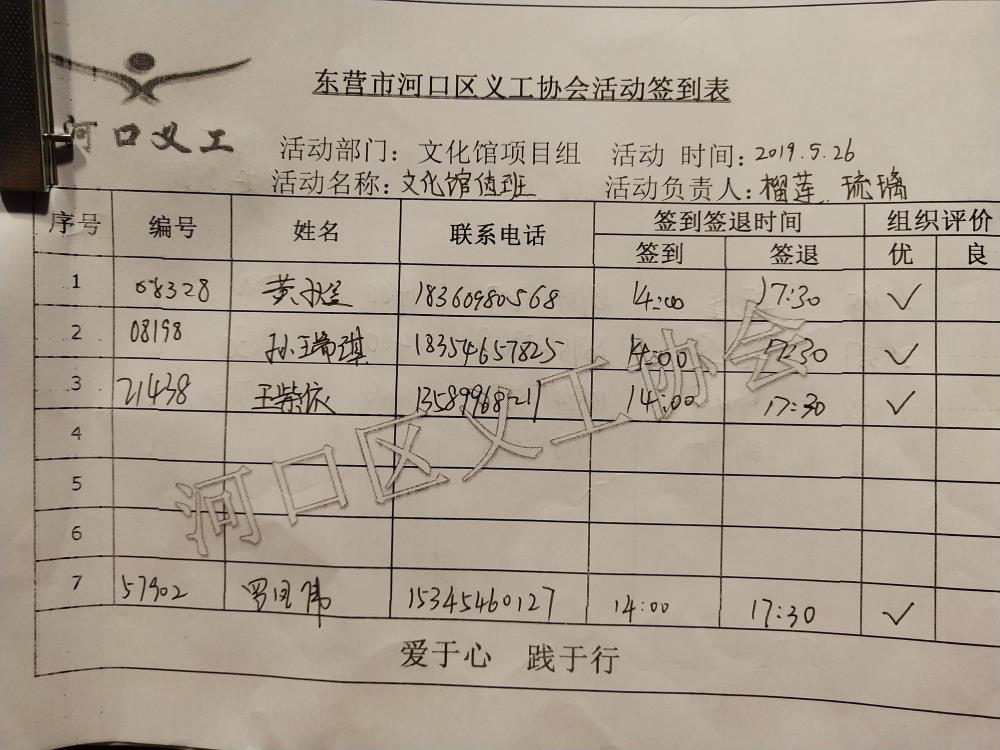 东营市河口区义工协会活动签到表
河口义工
活动部门：文化馆项目组 活动 时间：2019.5.26
活动名称：文化馆值班 活动负责人：榴莲 琉璃
序号 编号 姓名 联系电话 签到签退时间 组织评价
签到 签退 优 良
1 08328 黄 18360980568 14:00 17:30 ✓
2 08198 孙瑞琪 18354657825 14:00 17:30 ✓
3 21438 王紫依 13589968217 14:00 17:30 ✓
4
5
6
7 57902 罗凤伟 15345460127 14:00 17:30 ✓
爱于心 践于行
河口区义工协会